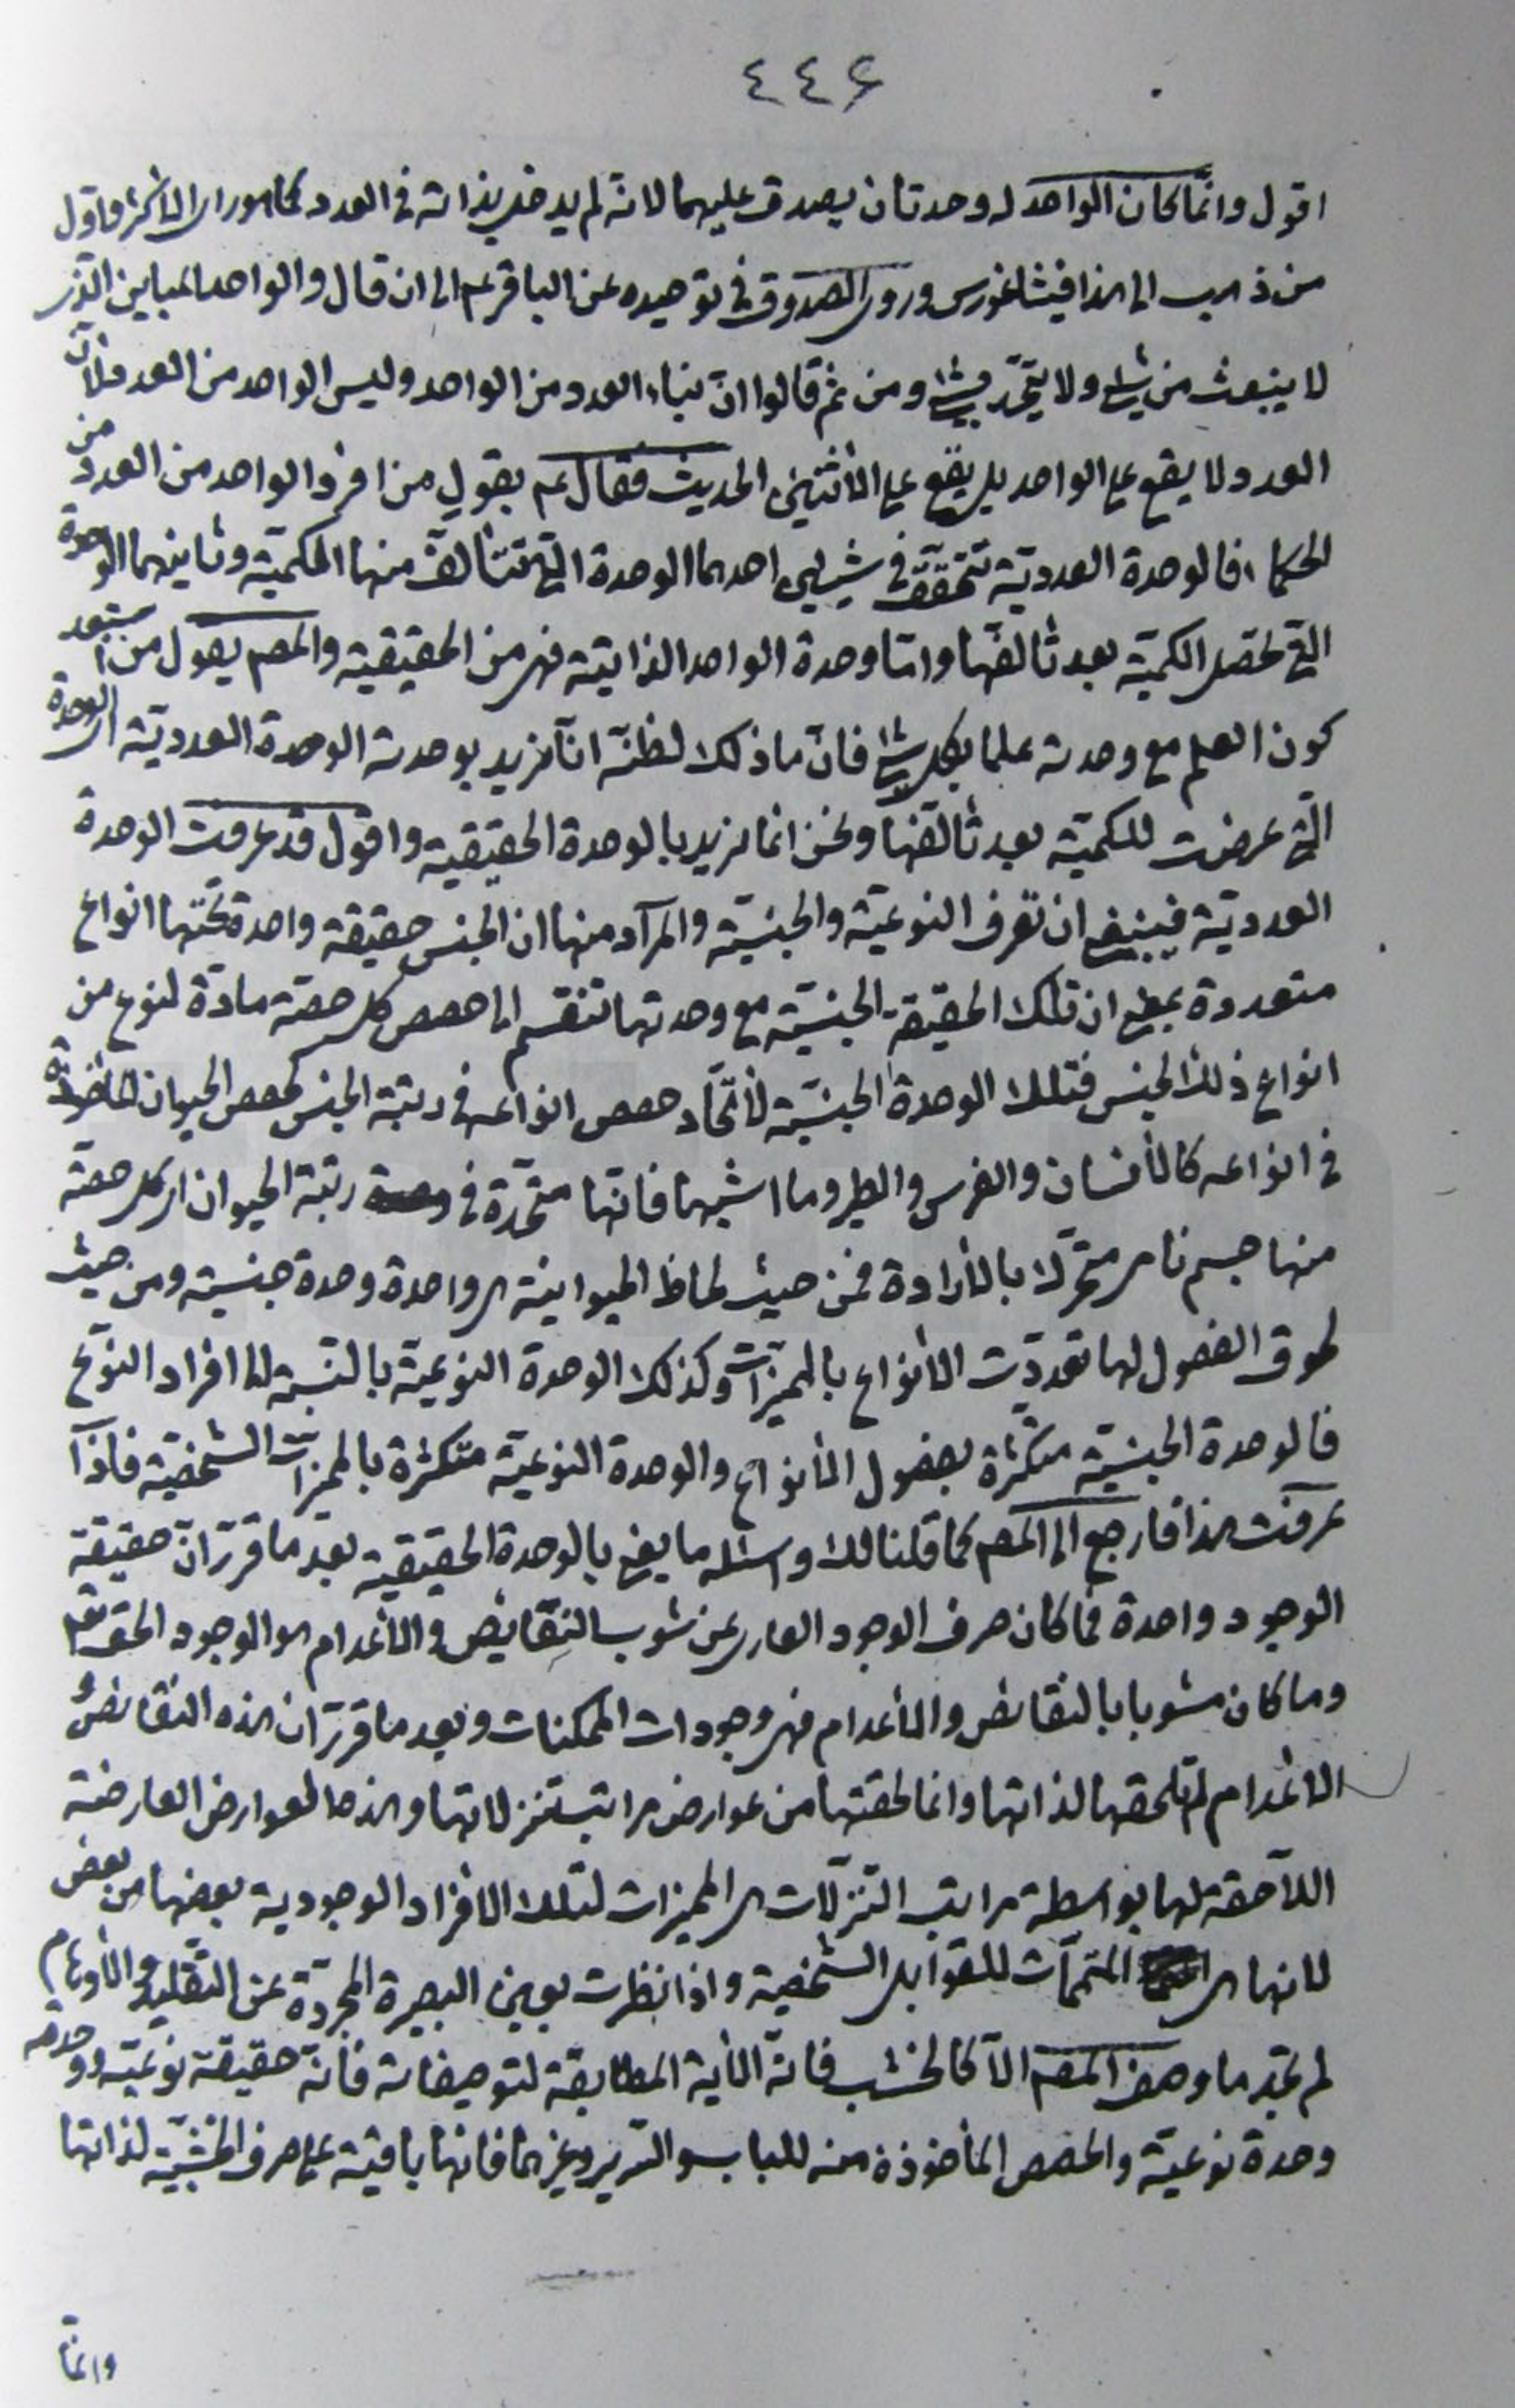 ٤٤٦
اقول وانّما كان الواحد له وحدتان يصدق عليهما لانه لم يدخل بذاته في العدد كما هو راى الاكثر واوّل
من ذهب الى هذا فيثاغورس وروى الصدوق في توحيده عن الباقر عم الى ان قال والواحد المباين الذى
لا ينبعث من شئ ولا يتّحد بشئ ومن ثم قالوا انّ بناء العدد من الواحد وليس الواحد من العدد فلان
العدد لا يقع على الواحد بل يقع على الأثنين الحديث فقال عم بقول من افرد الواحد من العدد من
الحكماء فالوحدة العدديّة تتحقّق في شيئين احدهما الوحدة التي تتألف منها الكميّة وثانيهما الوحدة
التي تحصل الكميّة بعد تألفها وامّا وحدة الواحد الذاتية فهى من الحقيقية والمصم يقول من استبعد
كون العلم مع وحدته علما بكل شئ فانّ ما ذلك لظنّه انّا نريد بوحدته الوحدة العدديّة اى الوحدة
التي عرضت للكميّة بعد تألفها ونحن انما نريد بالوحدة الحقيقية واقول قد عرفت الوحدة
العدديّة فينبغي ان تعرف النوعيّة والجنسيّة والمراد منها ان الجنس حقيقة واحدة تحتها انواع
متعددة بمعنى ان تلك الحقيقة الجنسيّة مع وحدتها تنقسم الى حصص كل حصّة مادّة لنوع من
انواع ذلك الجنس فتلك الوحدة الجنسيّة لأتّحاد حصص انواعه في رتبة الجنس كحصص الحيوان المأخوذة
في انواعه كالأنسان والفرس والطير وما اشبهها فانّها متّحدة في رتبة الحيوان اى كل حصّة
منها جسم نامى متحرّك بالأرادة فمن حيث لحاظ الحيوانيّة هى واحدة وحدة جنسيّة ومن حيث
لحوق الفصول لها تعدّدت الأنواع بالمميّزات وكذلك الوحدة النوعيّة بالنسبة الى افراد النوع
فالوحدة الجنسيّة متكثّرة بفصول الأنواع والوحدة النوعيّة متكثرة بالمميّزات الشخصيّة فاذا
عرفت هذا فارجع الى المصم كما قلنا لك واسئله ما يعنى بالوحدة الحقيقية بعد ما قرّر انّ حقيقة
الوجود واحدة فما كان صرف الوجود العارى عن شوب النقايض والأعدام هو الوجود الحق تعم
وما كان مشوبا بالنقائض والأعدام فهى وجودات الممكنات وبعد ما قرّر ان هذه النقائض و
الأعدام لم تلحقها لذاتها وانما لحقتها من عوارض مراتب تنزلاتها وهذه العوارض العارضة
اللاحقة لها بواسطة مراتب التنزّلات هى المميزات لتلك الافراد الوجودية بعضها من بعض
لانها هى المتمّمات للقوابل الشخصية واذا نظرت بعين البصيرة المجرّدة عن التقليد والأوهام
لم تجد ما وصف المصم الّا كالخشب فانه الأية المطابقة لتوصيفاته فانّه حقيقة نوعيّة ووحدته
وحدة نوعيّة والحصص المأخوذة منه للباب والسرير وغيرهما فانها باقية على صرف الخشبيّة لذاتها
وانّما